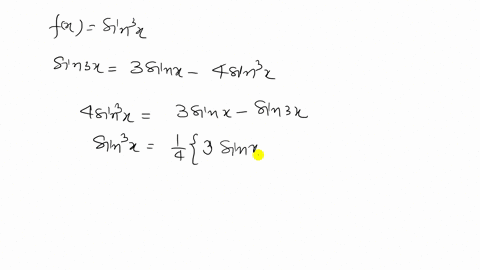 f(x) = sin³x
sin3x = 3sinx - 4sin³x
4sin³x = 3sinx - sin3x
sin³x = 1/4 { 3 sinx